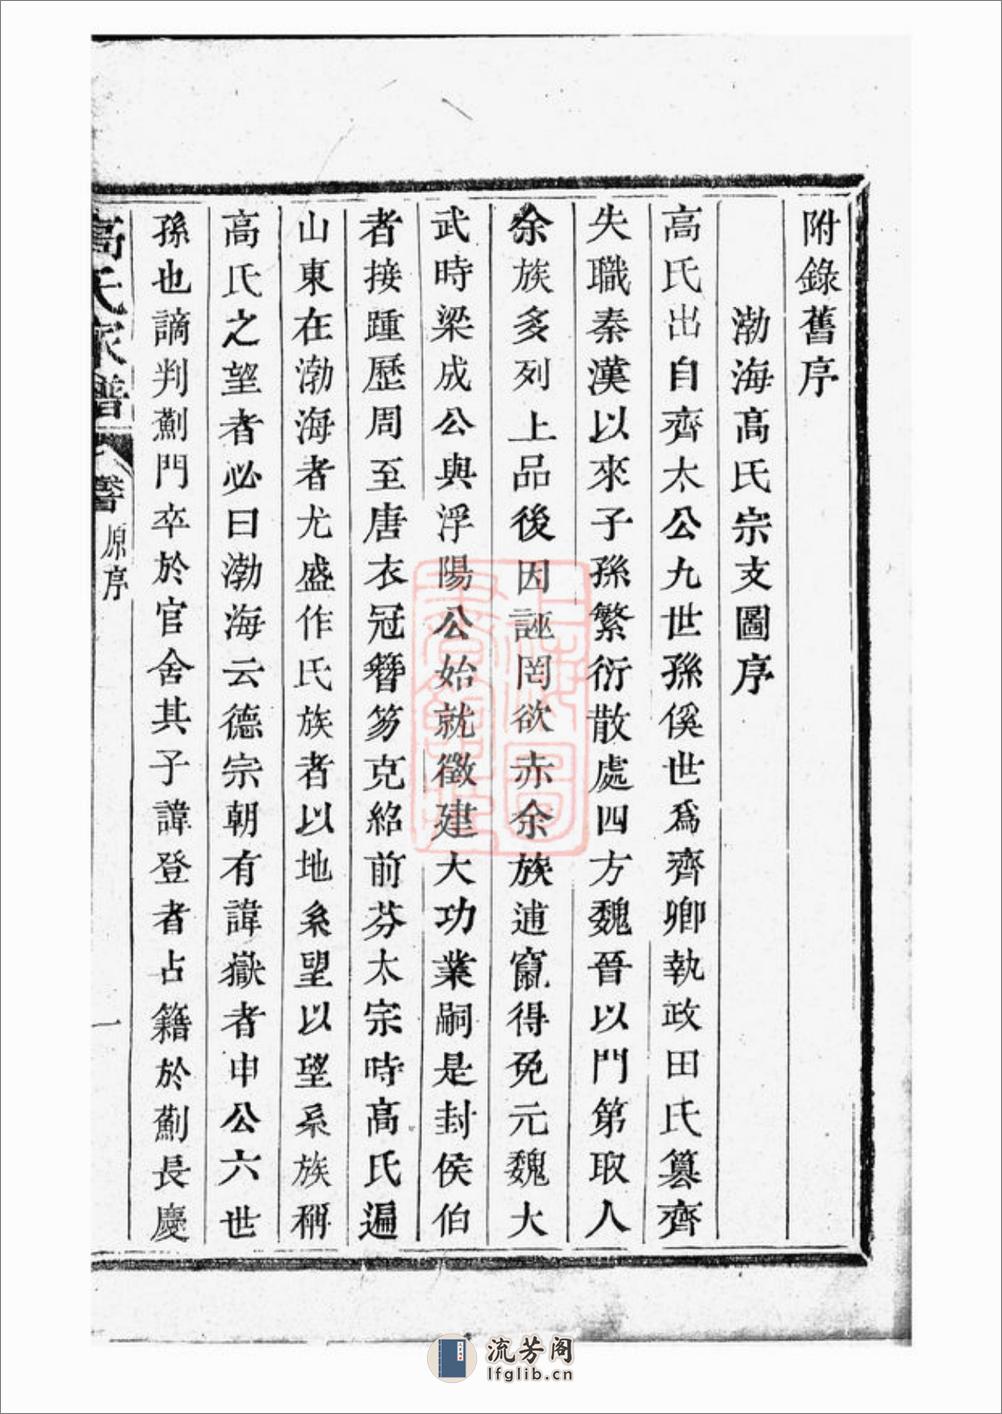 附錄舊序
渤海高氏宗支圖序
高氏出自齊太公九世孫傒世爲齊卿執政田氏簒齊
失職秦漢以來子孫繁衍散處四方魏晉以門第取人
余族多列上品後因誣罔欲赤余族逋竄得免元魏大
武時梁成公與浮陽公始就徵建大功業嗣是封侯伯
者接踵歷周至唐衣冠簪笏克紹前芬太宗時高氏遍
山東在渤海者尤盛作氏族者以地系望以望系族稱
高氏之望者必曰渤海云德宗朝有諱嶽者申公六世
孫也謫判薊門卒於官舍其子諱登者占籍於薊長慶
高氏家譜
原序
一
上海圖書館藏
流芳阁
lfglib.cn